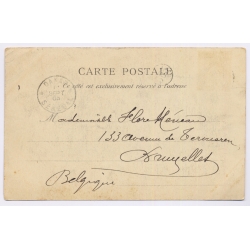 CARTE POSTALE
Ce côté est exclusivement réservé à l'adresse
Mademoiselle Flore
133 avenue de Tervueren
Bruxelles
Belgique